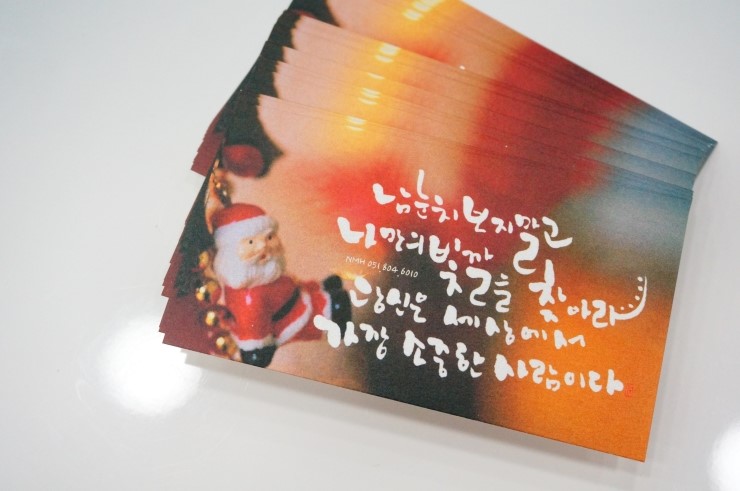 남눈치보지말고
나만의빛깔을 찾아라
NMH 051.804.6010
당신은 세상에서
가장 소중한 사람이다